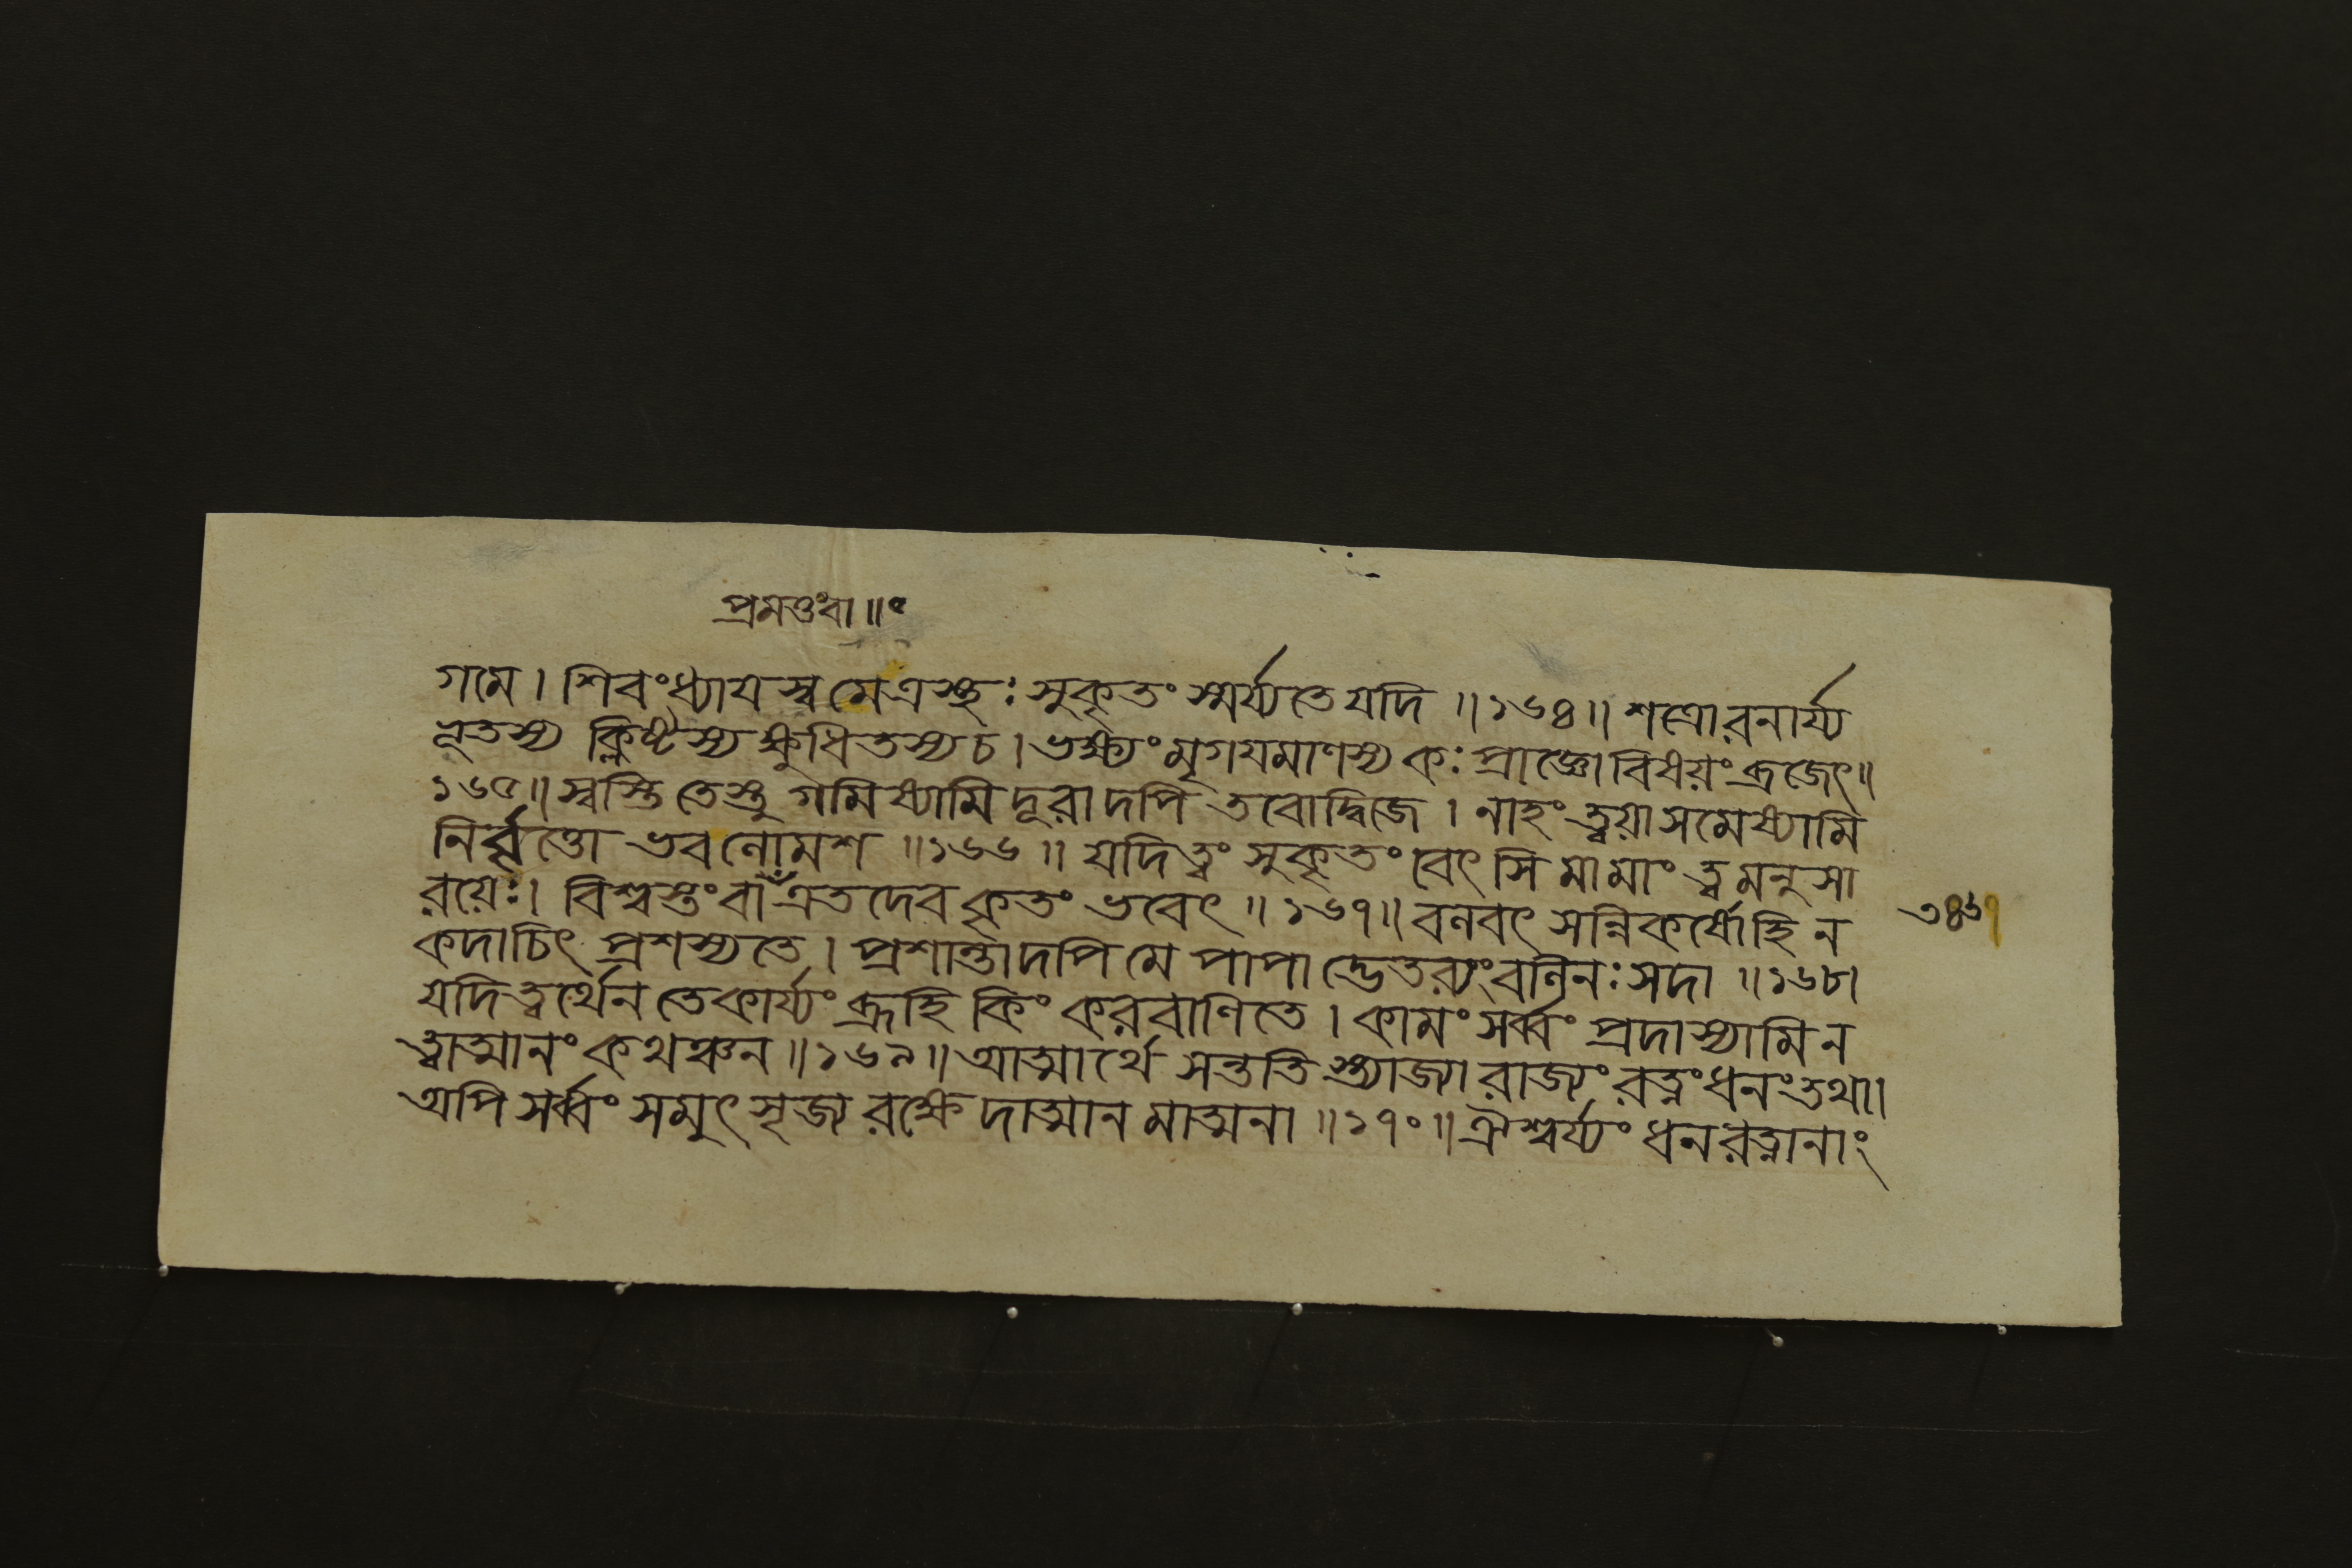 প্রমত্তংবা॥
গমে। শিবংধ্যাযস্বমেত্রস্থঃ সুকৃতং স্মর্য্যতে যদি॥১৬৪॥ শত্রোরনার্য্য
ভূতস্য ক্লিষ্টস্য ক্ষুধিতস্য চ। ভক্ষ্যং মৃগযমাণস্য কঃ প্রাজ্ঞো বিষয়ং ব্রজেৎ॥
১৬৫॥ স্বস্তি তেস্তু গমিষ্যামি দূরাদপি তবোদ্বিজে। নাহং ত্বয়া সমেষ্যামি
নির্বৃত্তো ভব লোমশ॥১৬৬॥ যদি ত্বং সুকৃতং বেৎসি মামাং ত্বমনুসা
রয়েঃ। বিশ্বস্তং বা এতদেব কৃতং ভবেৎ॥১৬৭॥ বলবৎ সন্নিকর্ষো হি ন
কদাচিৎ প্রশস্যতে। প্রশান্তাদপি মে পাপাদ্ভেতব্যং বলিনঃ সদা॥১৬৮।
যদি ত্বর্থেন তে কার্য্যং ব্রূহি কিং করবাণি তে। কামং সর্ব্বং প্রদাস্যামি ন
ত্বাত্মানং কথঞ্চন॥১৬৯॥ আত্মার্থে সন্ততিস্ত্যাজ্যা রাজ্যং রত্নং ধনং তথা।
অপি সর্ব্বং সমুৎসৃজ্য রক্ষেদাত্মানমাত্মনা॥১৭০॥ ঐশ্বর্য্যং ধনরত্নানাং